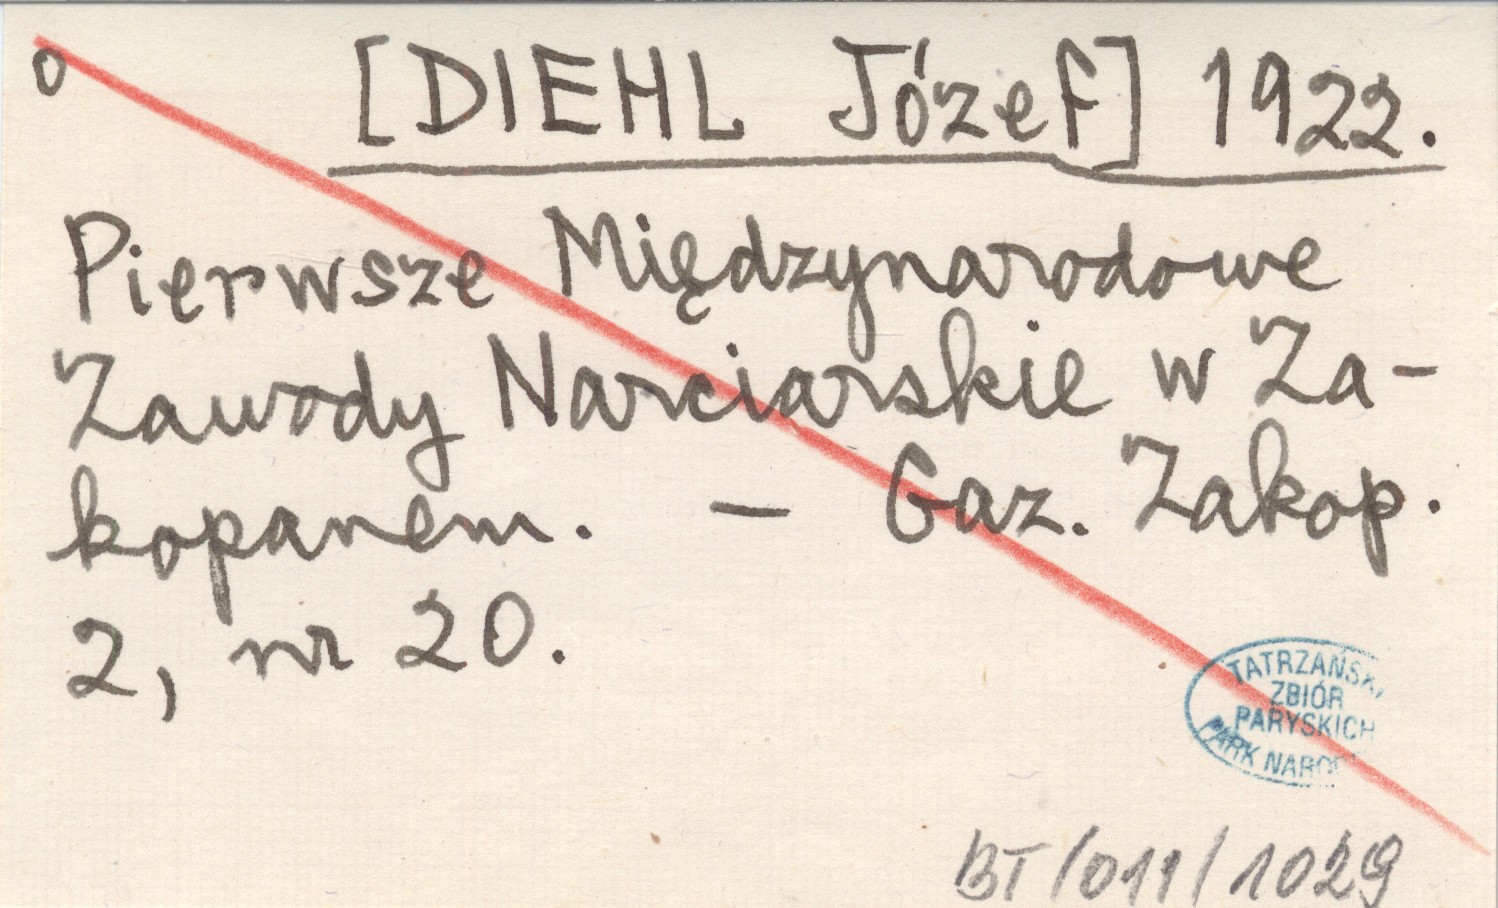 o [DIEHL Józef] 1922.
Pierwsze Międzynarodowe
Zawody Narciarskie w Za-
kopanem. — Gaz. Zakop.
2, nr 20.
TATRZAŃSKI
ZBIÓR
PARYSKICH
PARK NARO
BT/011/1029